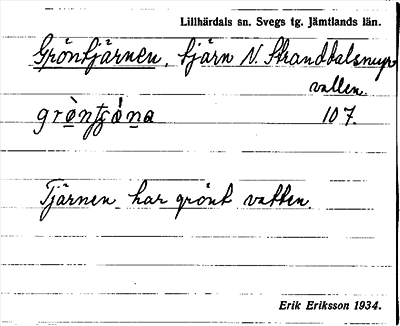 Lillhärdals sn. Svegs tg. Jämtlands län.
Gröntjärnen, tjärn N. Stranddalsmyr
vallen.
107.
Tjärnen har grönt vatten
Erik Eriksson 1934.